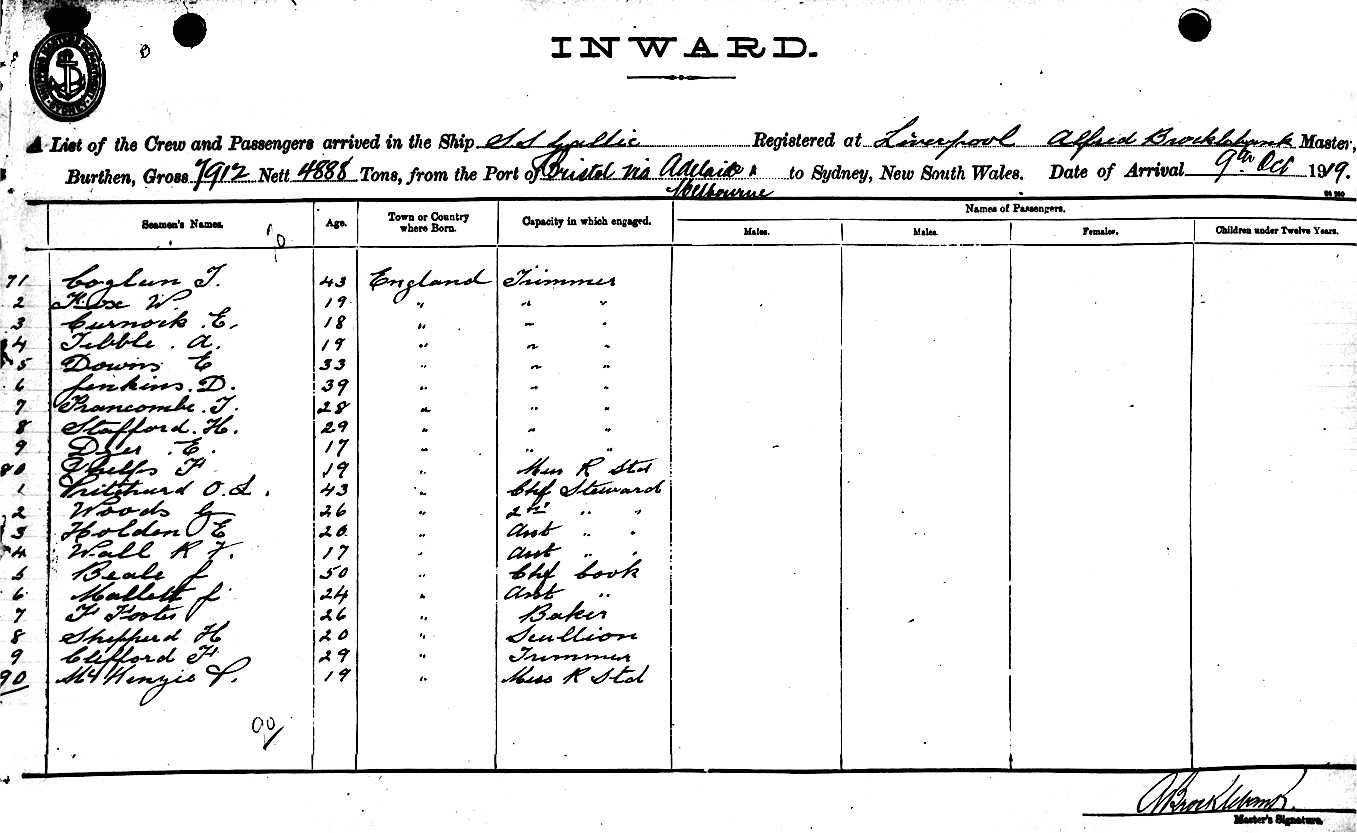 INWARD.
A List of the Crew and Passengers arrived in the Ship S.S Gallic Registered at Liverpool Alfred Brocklebank Master,
Burthen, Gross 7912 Nett 4888 Tons, from the Port of Bristol via Adelaide & to Sydney, New South Wales. Date of Arrival 9th Oct 1919.
Melbourne
Names of Passengers.
Seamen's Names. Age. Town or Country where Born. Capacity in which engaged. Males. Males. Females. Children under Twelve Years.
71 Coglun T. 43 England Trimmer
2 Fox W. 19 " " "
3 Curnock E. 18 " " "
4 Tibble . A. 19 " " "
5 Downs E 33 " " "
6 Jenkins. D. 39 " " "
7 Francombe. T. 28 " " "
8 Stafford. H. 29 " " "
9 Dyer . E. 17 " " "
80 Phelps F 19 " Mess R Std
1 Pritchard O.L. 43 " Chf Steward
2 Woods G 26 " 2nd " "
3 Holden E 20 " Asst " "
4 Wall R F. 17 " Asst " "
5 Beale J 50 " Chf Cook
6 Mallett J 24 " Asst "
7 F Foote 26 " Baker
8 Shepperd H 20 " Scullion
9 Clifford F 29 " Trimmer
90 McKenzie P. 19 " Mess R Std
90/
A Brocklebank.
Master's Signature.